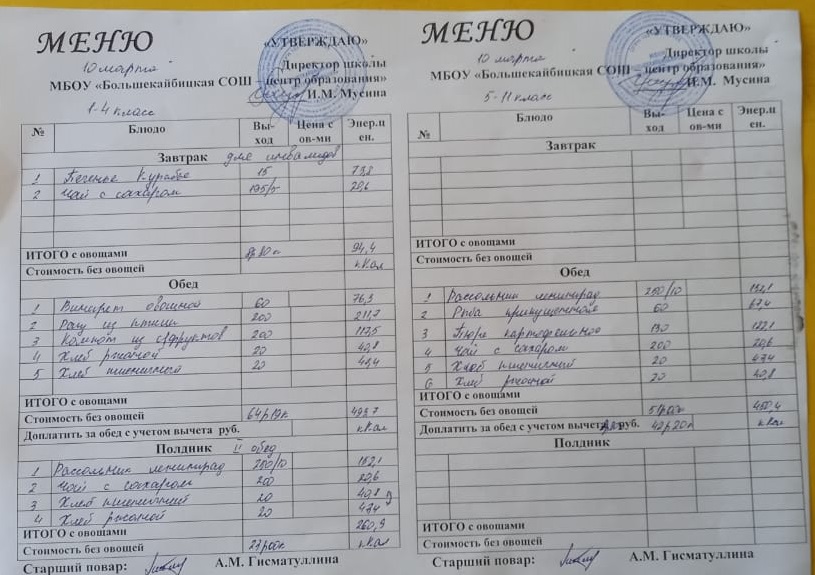 МЕНЮ
«УТВЕРЖДАЮ»
10 марта
Директор школы
МБОУ «Большекайбицкая СОШ – центр образования»
И.М. Мусина
1-4 класс
№ Блюдо Вы-ход Цена с ов-ми Энер.ц ен.
Завтрак для инвалидов
1 Печенье Курабье 15 73,8
2 Чай с сахаром 195/5 20,6
ИТОГО с овощами 94,4
Стоимость без овощей кКал
Обед
1 Винегрет овощной 60 76,3
2 Рагу из птицы 200 211,7
3 Компот из с/фруктов 200 117,5
4 Хлеб ржаной 20 40,8
5 Хлеб пшеничный 20 47,4
ИТОГО с овощами
Стоимость без овощей 64р19к 493,7
Доплатить за обед с учетом вычета руб. кКал
Полдник II обед
1 Рассольник ленинград 250/10 152,1
2 Чай с сахаром 200 20,6
3 Хлеб пшеничный 20 40,8
4 Хлеб ржаной 20 47,4
ИТОГО с овощами 260,9
Стоимость без овощей кКал
Старший повар: А.М. Гисматуллина
МЕНЮ
«УТВЕРЖДАЮ»
10 марта
Директор школы
МБОУ «Большекайбицкая СОШ – центр образования»
И.М. Мусина
5-11 класс
№ Блюдо Вы-ход Цена с ов-ми Энер.ц ен.
Завтрак
ИТОГО с овощами
Стоимость без овощей
Обед
1 Рассольник ленинград 250/10 152,1
2 Рыба припущенная 60 67,4
3 Пюре картофельное 130 122,1
4 Чай с сахаром 200 20,6
5 Хлеб пшеничный 20 47,4
6 Хлеб ржаной 20 40,8
ИТОГО с овощами
Стоимость без овощей 450,4
Доплатить за обед с учетом вычета руб. 42р20к кКал
Полдник
ИТОГО с овощами
Стоимость без овощей
Старший повар: А.М. Гисматуллина